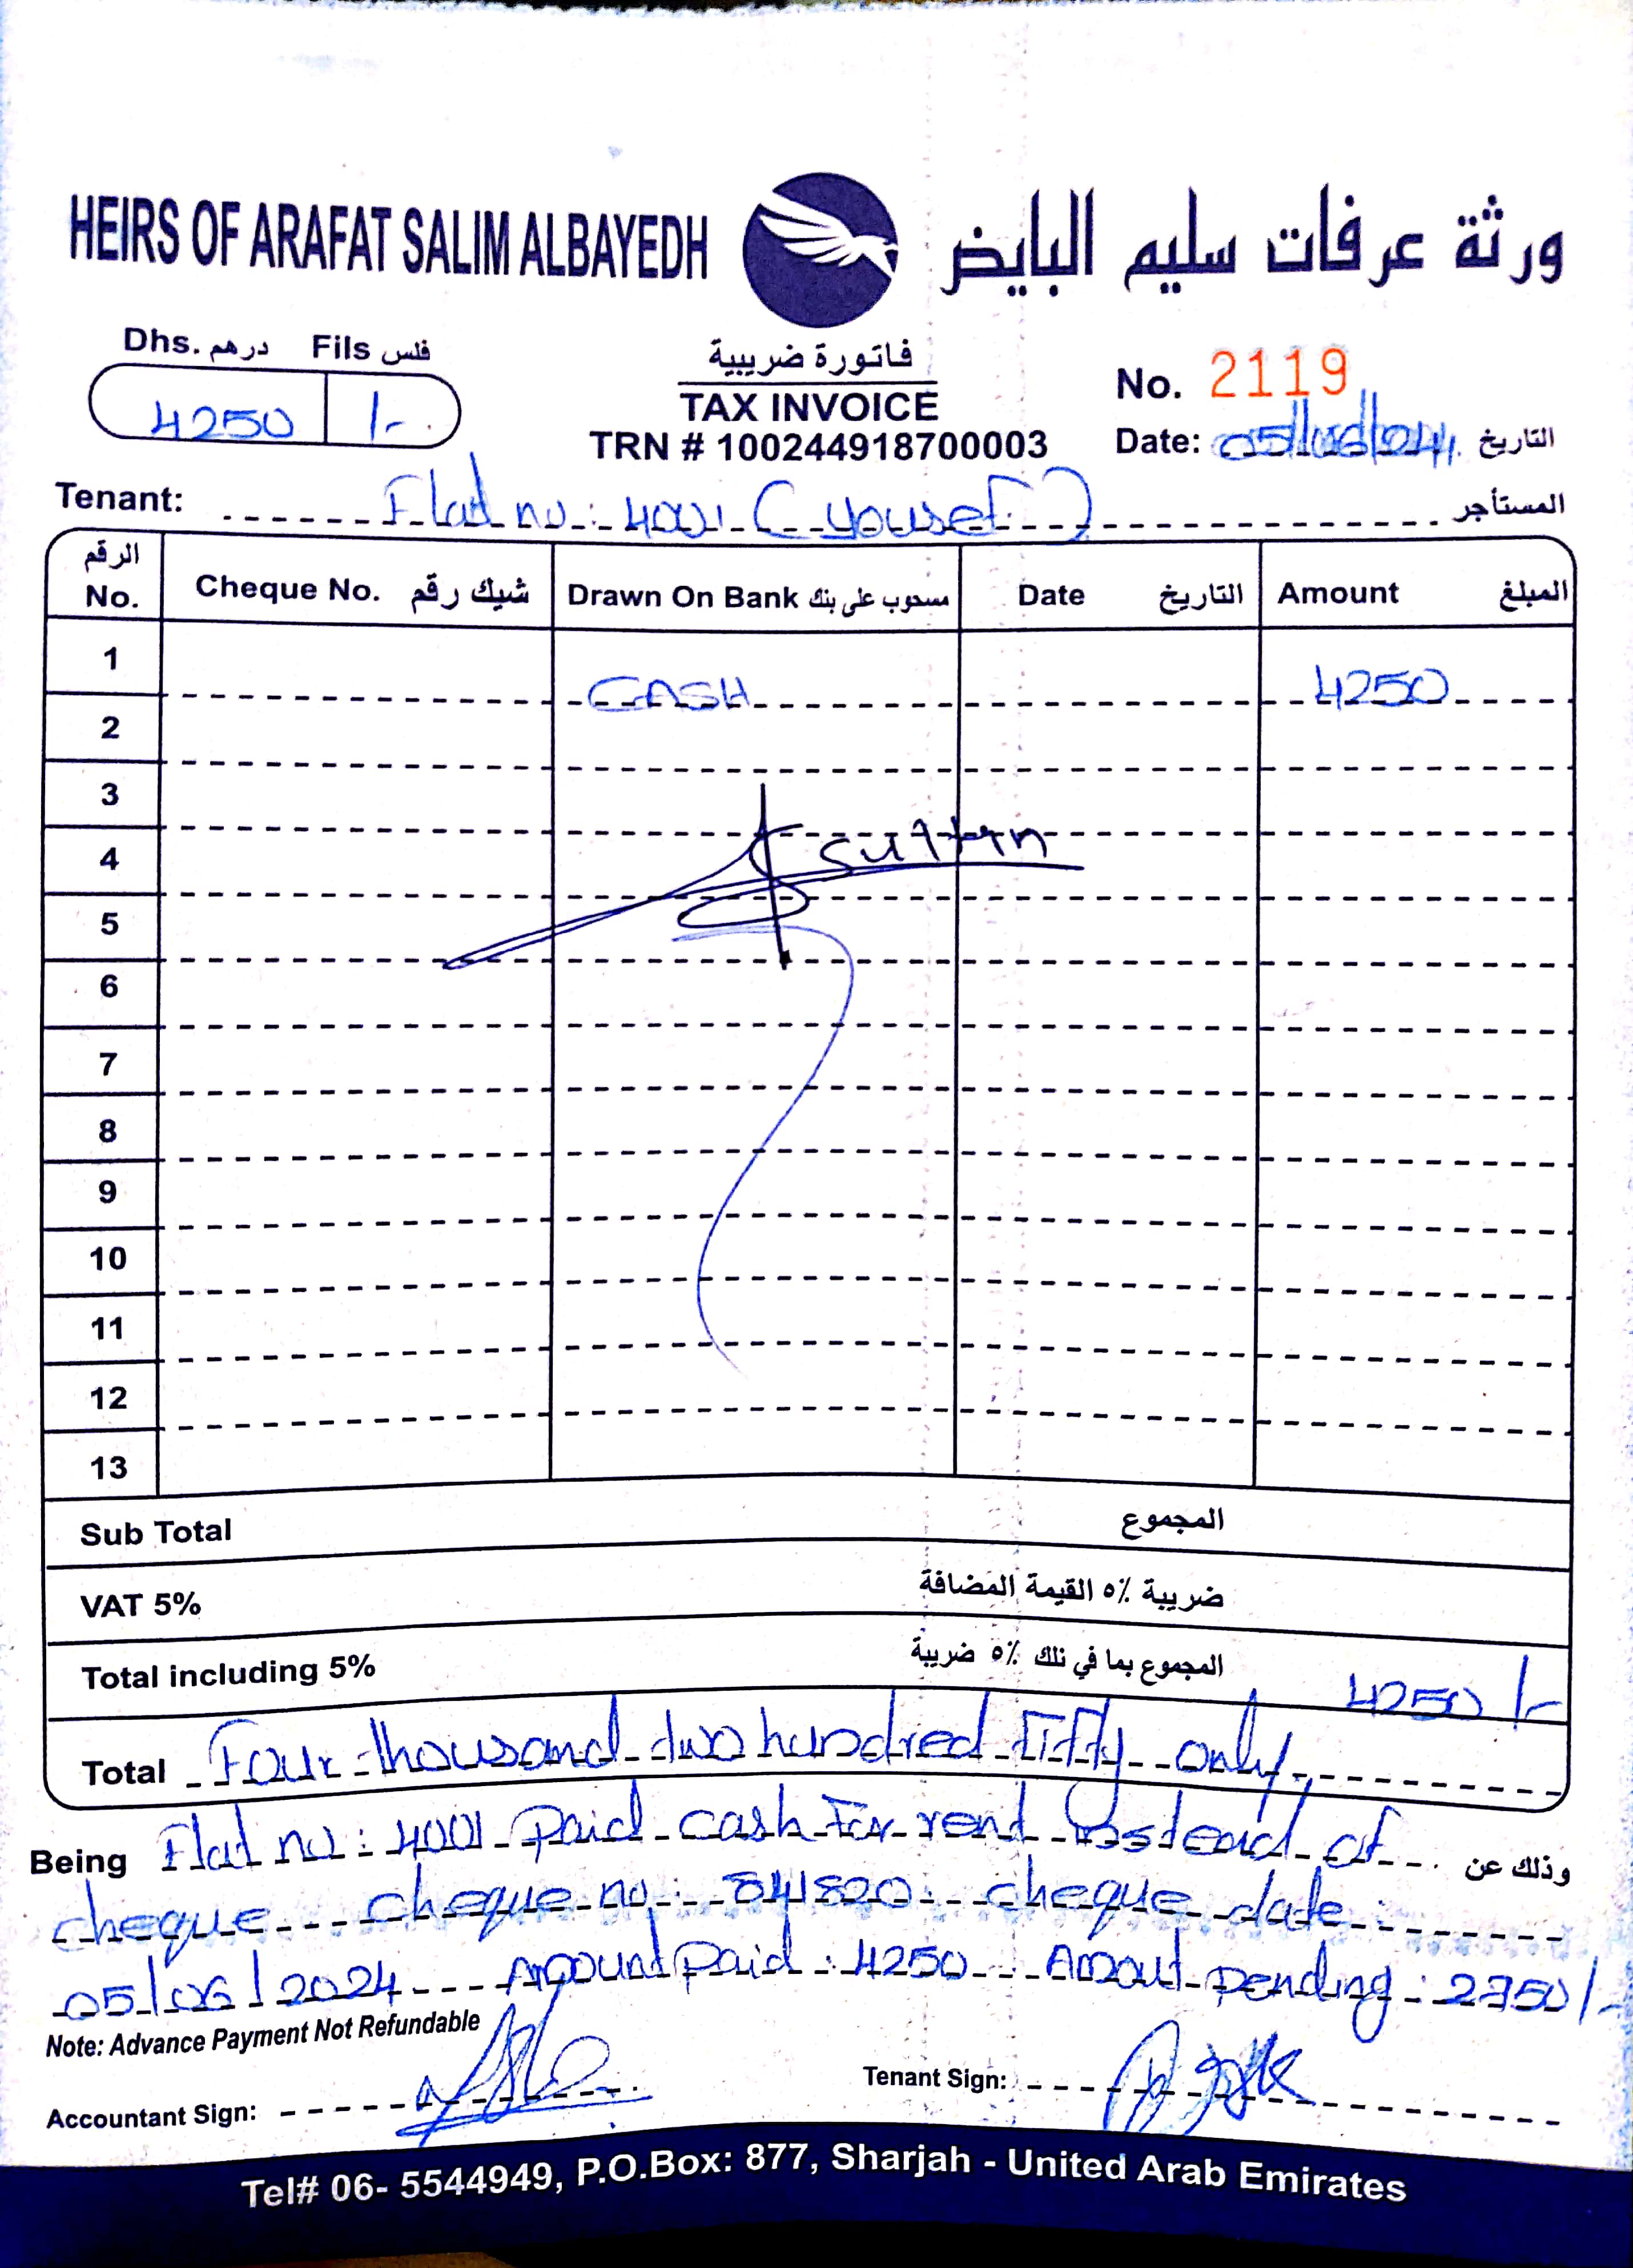 HEIRS OF ARAFAT SALIM ALBAYEDH ورثة عرفات سليم البايض
Dhs. درهم Fils فلس
4250 /-
فاتورة ضريبية
TAX INVOICE
TRN # 100244918700003
No. 2119
Date: 05/06/24 التاريخ
Tenant: Flat no: 4001 (yousef) المستأجر
الرقم No. Cheque No. شيك رقم Drawn On Bank مسحوب على بنك Date التاريخ Amount المبلغ
1 CASH 4250
2
3
4 sultan
5
6
7
8
9
10
11
12
13
Sub Total المجموع
VAT 5% ضريبة ٥٪ القيمة المضافة
Total including 5% المجموع بما في ذلك ٥٪ ضريبة 4250 /-
Total Four thousand two hundred fifty only
Being Flat no: 4001 paid cash for rent instead of وذلك عن
cheque cheque no: 841820 cheque date:
05/06/2024 Amount paid: 4250 Amout pending: 2750/-
Note: Advance Payment Not Refundable
Accountant Sign: Tenant Sign:
Tel# 06- 5544949, P.O.Box: 877, Sharjah - United Arab Emirates